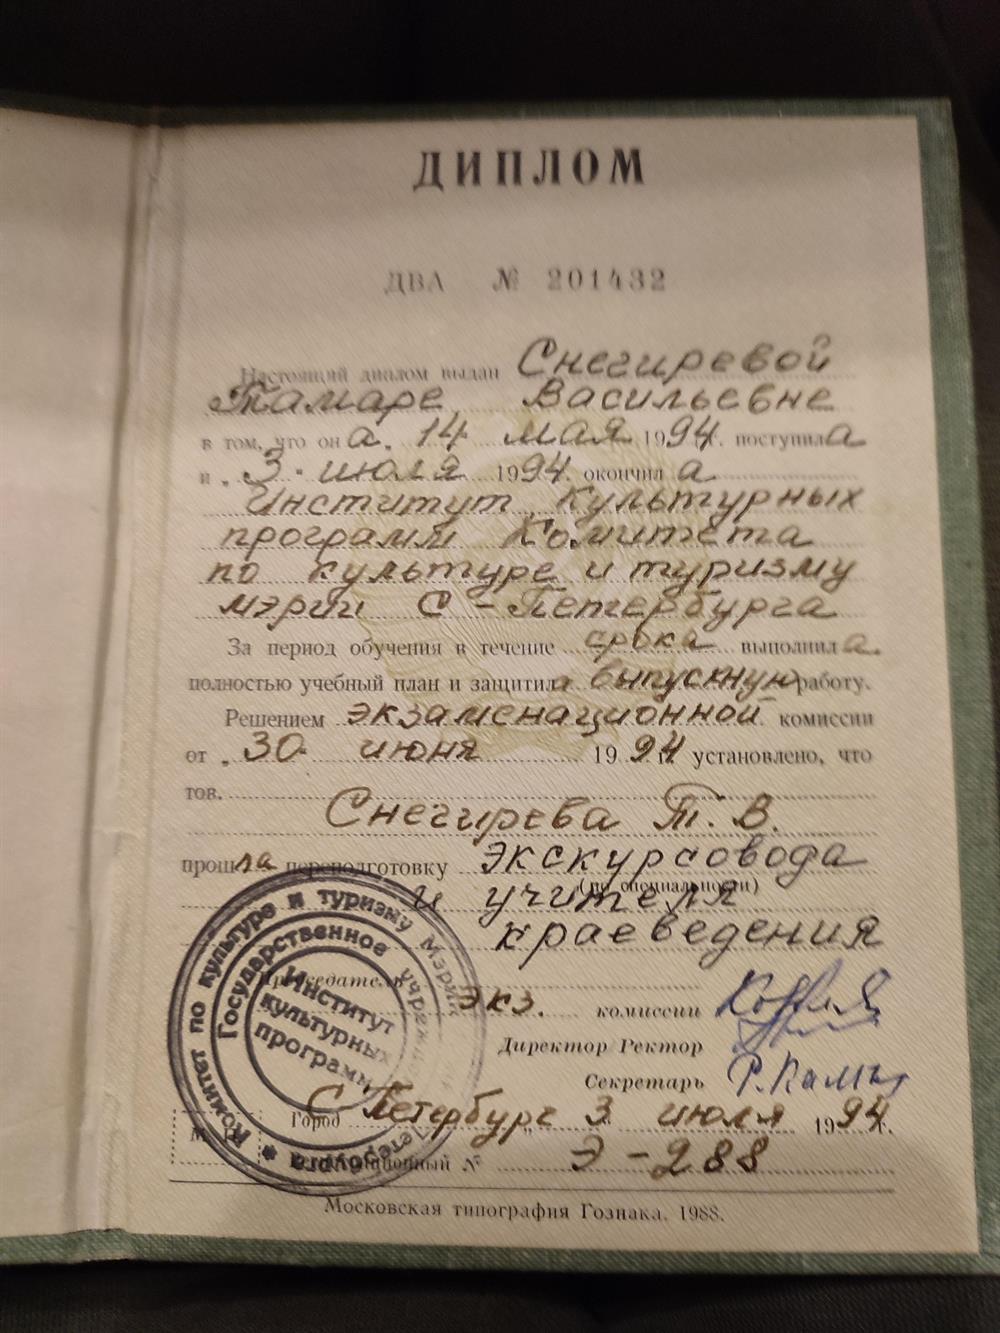 ДИПЛОМ
ДВА № 201432
Настоящий диплом выдан Снегиревой
Тамаре Васильевне
в том, что он а „ 14 мая 1994 г. поступил а
и „ 3 " июля 1994 г. окончил а
Институт культурных
программ Комитета
по культуре и туризму
мэрии С-Петербурга
За период обучения в течение срока выполнил а
полностью учебный план и защитил а выпускную работу.
Решением экзаменационной комиссии
от „ 30 июня 1994 г. установлено, что
тов.
Снегирева Т. В.
прошла переподготовку экскурсовода
(по специальности)
и учителя
краеведения
Председатель экз. комиссии
Директор Ректор
Секретарь
Город С Петербург „ 3 июля 1994 г.
М. П.
Регистрационный № Э-288
Московская типография Гознака. 1988.
Комитет по культуре и туризму Мэрии
Государственное учреждение
Институт
культурных
программ